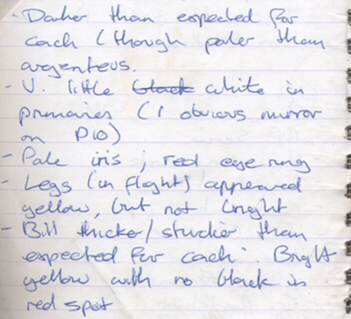 - Darker than expected for
cach (though paler than
argenteus.
- V. little black white in
primaries (1 obvious mirror
on P10)
- Pale iris ; red eye ring
- Legs (in flight) appeared
yellow, but not bright
- Bill thicker/sturdier than
expected for cach. Bright
yellow with no black in
red spot